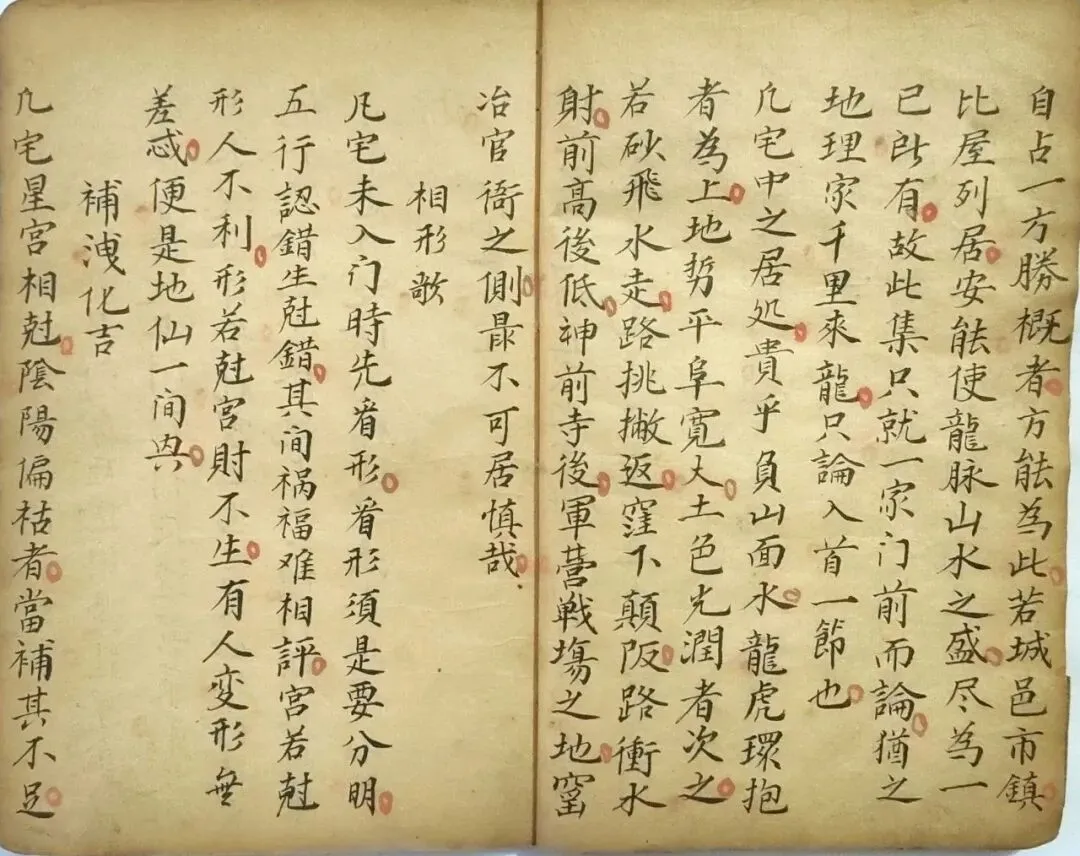 自占一方勝概者方能為此若城邑市鎮
比屋列居安能使龍脉山水之盛尽為一
已所有故此集只就一家门前而論猶之
地理家千里來龍只論入首一節也
凢宅中之居処貴乎負山面水龍虎環抱
者為上地势平阜寛大土色光潤者次之
若砂飛水走路挑撇返窪下顛阪路衝水
射前高後低神前寺後軍營戦塲之地窰
冶官衙之側最不可居慎哉
相形歌
凢宅未入门時先看形看形須是要分明
五行認錯生尅錯其间祸福难相評宫若尅
形人不利形若尅宫財不生有人变形無
差忒便是地仙一间
補洩化吉
凢宅星宫相尅陰陽偏祜者當補其不足